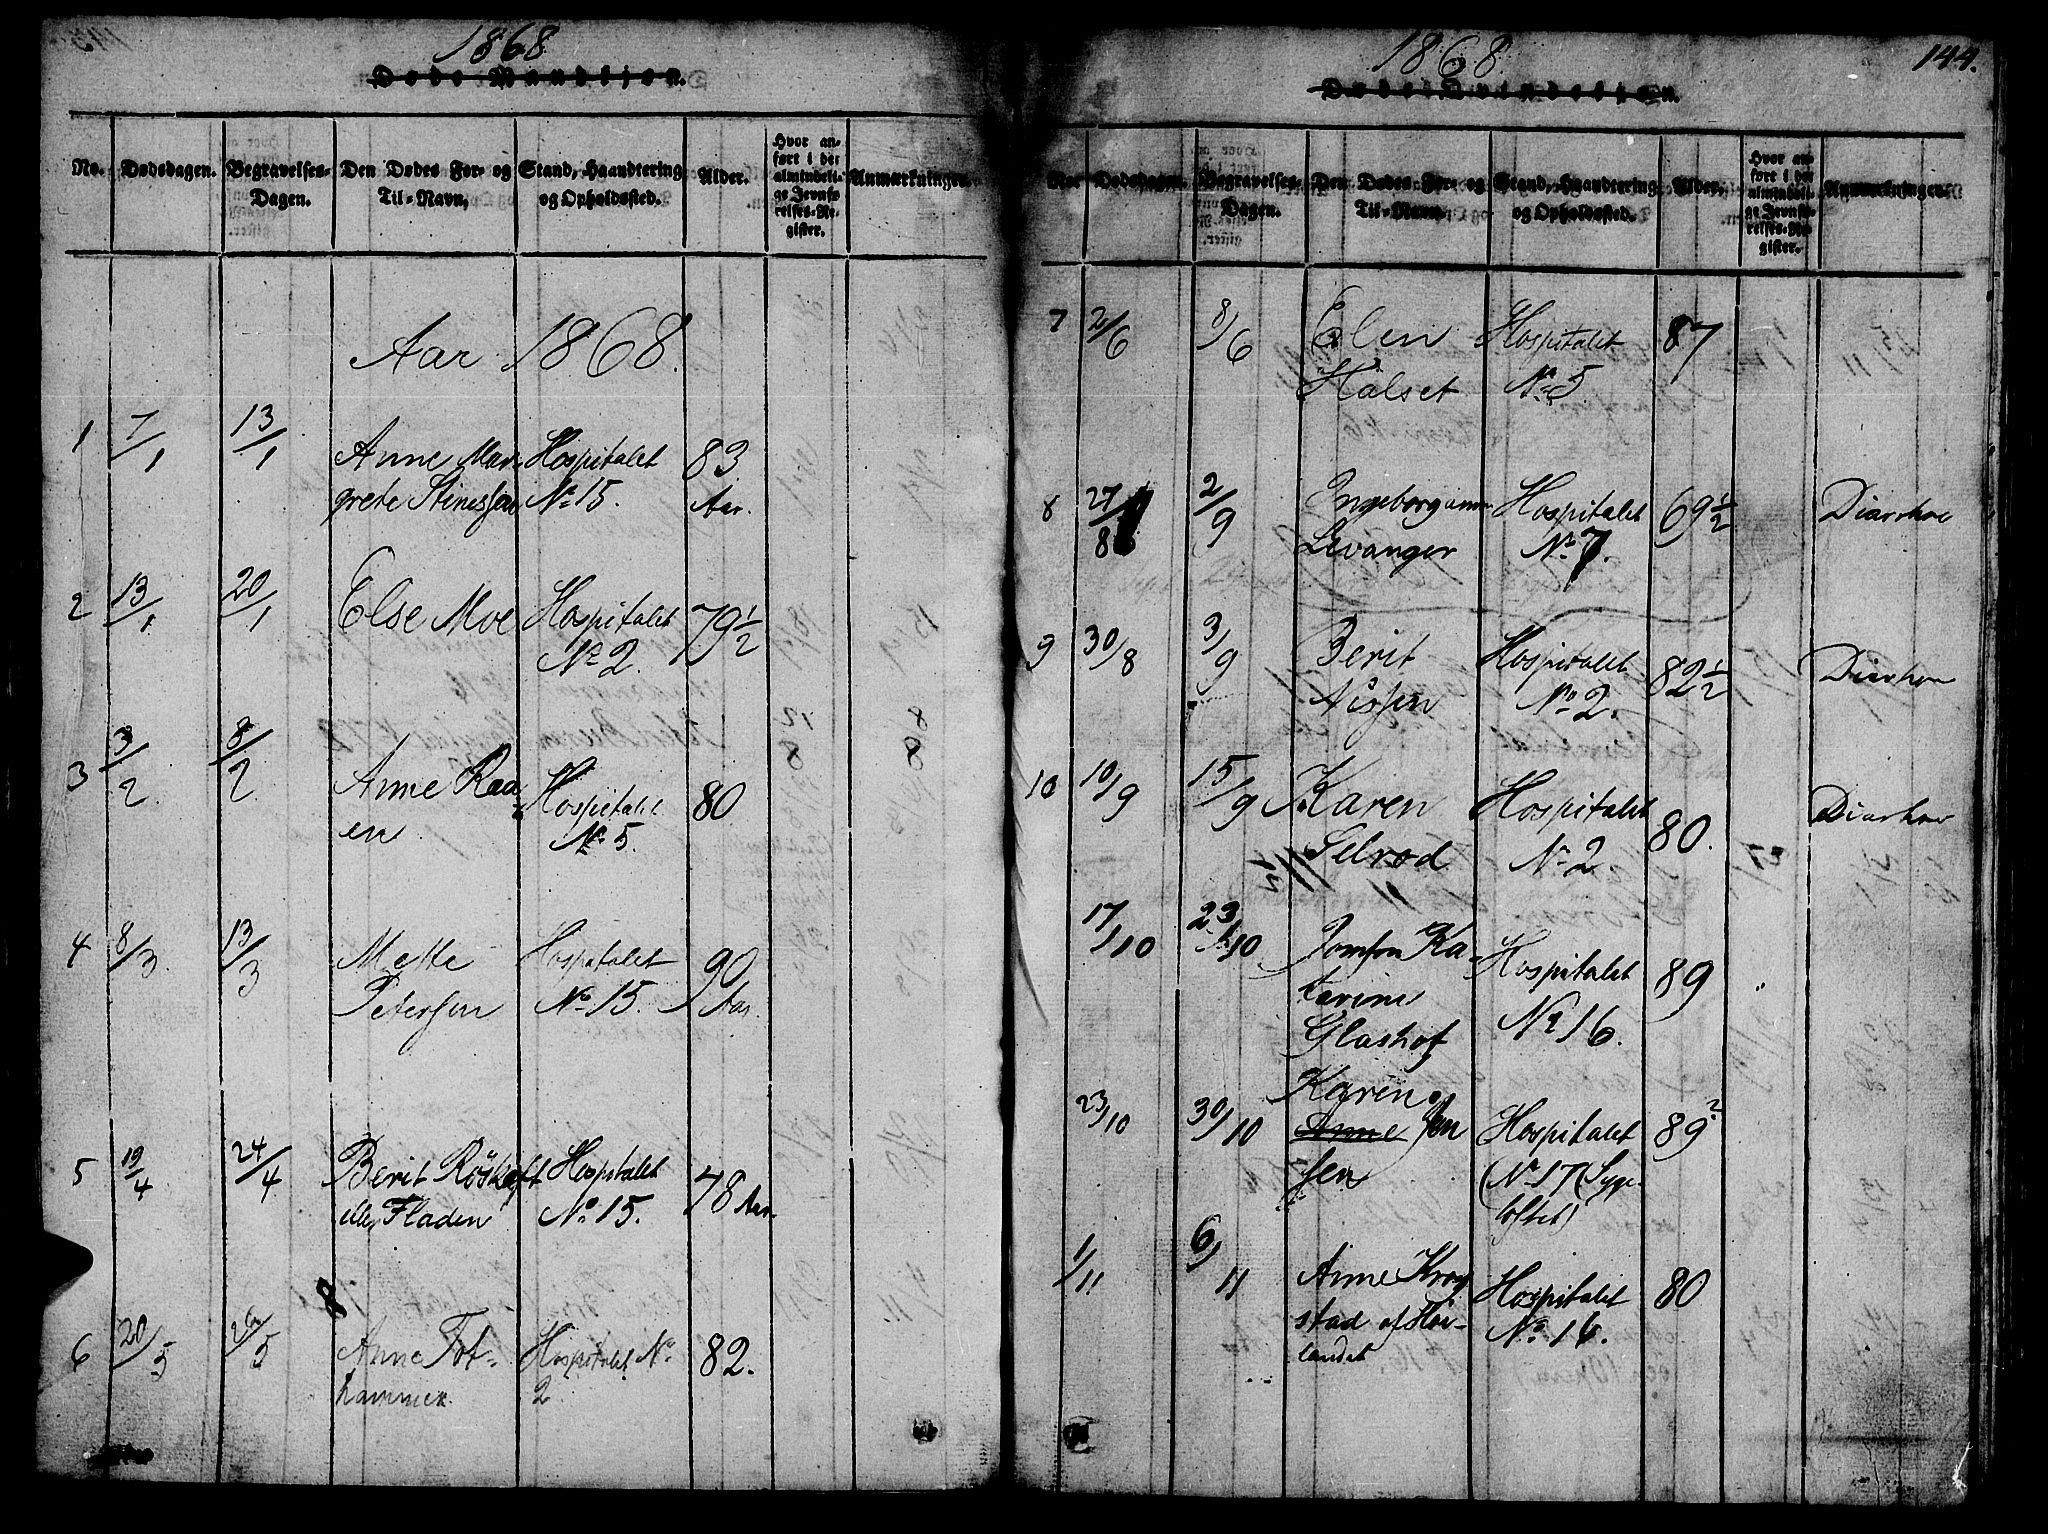 1868
Døde Mandkjøn.
No.
Dødsdagen.
Begravelses-
Dagen.
Den Dødes For- og
Til-Navn,
Stand, Haandtering
og Opholdssted.
Alder.
Hvor an-
ført i det
almindeli-
ge Jevnfø-
relses-Re-
gister.
Anmærkninger.
Aar 1868.
1 7/1 13/1 Anne Mar- Hospitalet 83
grete Stinessen No 15. Aar.
2 13/1 20/1 Else Moe Hospitalet 79 1/2
No 2.
3 3/2. 8/2. Anne Raa- Hospitalet 80
en No 5.
4 8/3. 13/3 Mette Hospitalet 90
Petersen No 15. Aar.
5 19/4 24/4 Berit Röskaft Hospitalet 78 Aar.
eller Fladen No 15.
6 20/5 26/5 Anne Fot- Hospitalet No 82.
hammer. 2
1868. 144.
Døde Qvindekjøn.
No.
Dødsdagen.
Begravelses-
Dagen.
Den Dødes For- og
Til-Navn.
Stand, Haandtering
og Opholdssted.
Alder.
Hvor an-
ført i det
almindeli-
ge Jevnfø-
relses-Re-
gister.
Anmærkninger.
7 2/6 8/6 Elen Hospitalet 87
Halset No 5
8 27/8 2/9 Ingeborg Hospitalet 69 1/2 Diarrhoe
Levanger No 7.
9 30/8 3/9 Berit Hospitalet 82 1/2 Diarhoe
Nissen No 2.
10 10/9 15/9 Karen Hospitalet 80. Diarhoe
Selrod No 2.
17/10 23/10 Jomfru Ka- Hospitalet 89
tarine No 16.
Glashof
Karen
23/10 30/10 Anne Jen Hospitalet 89 ?
sen (No 17 (Syge-
loftet)
1/11 6/11 Anne Krog Hospitalet 80
stad af Høi- No 16.
landet